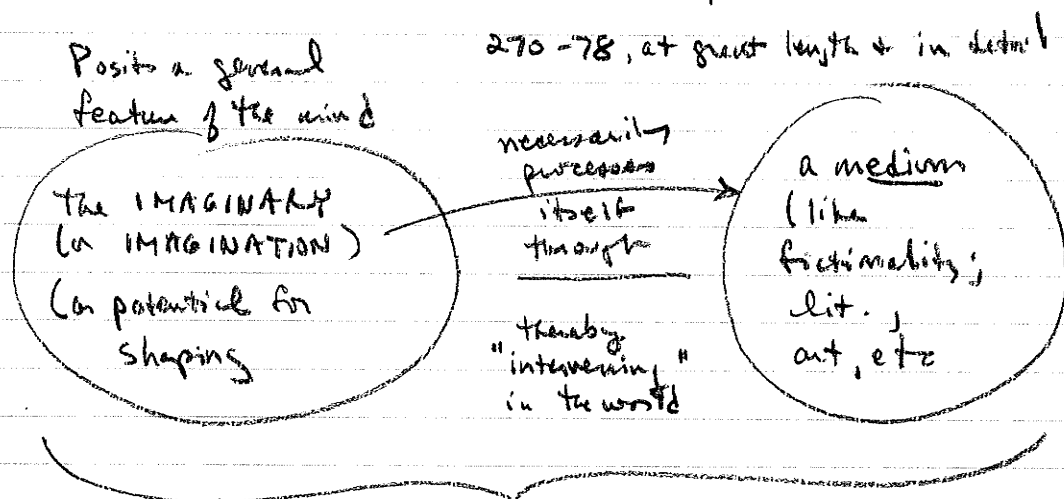 270-78, at great length & in detail
Posits a general
feature of the mind
The IMAGINARY
(or IMAGINATION)
(or potential for
shaping
necessarily
processes
itself
through
thereby
"intervening"
in the world
a medium
(like
fictionality;
lit.,
art, etc